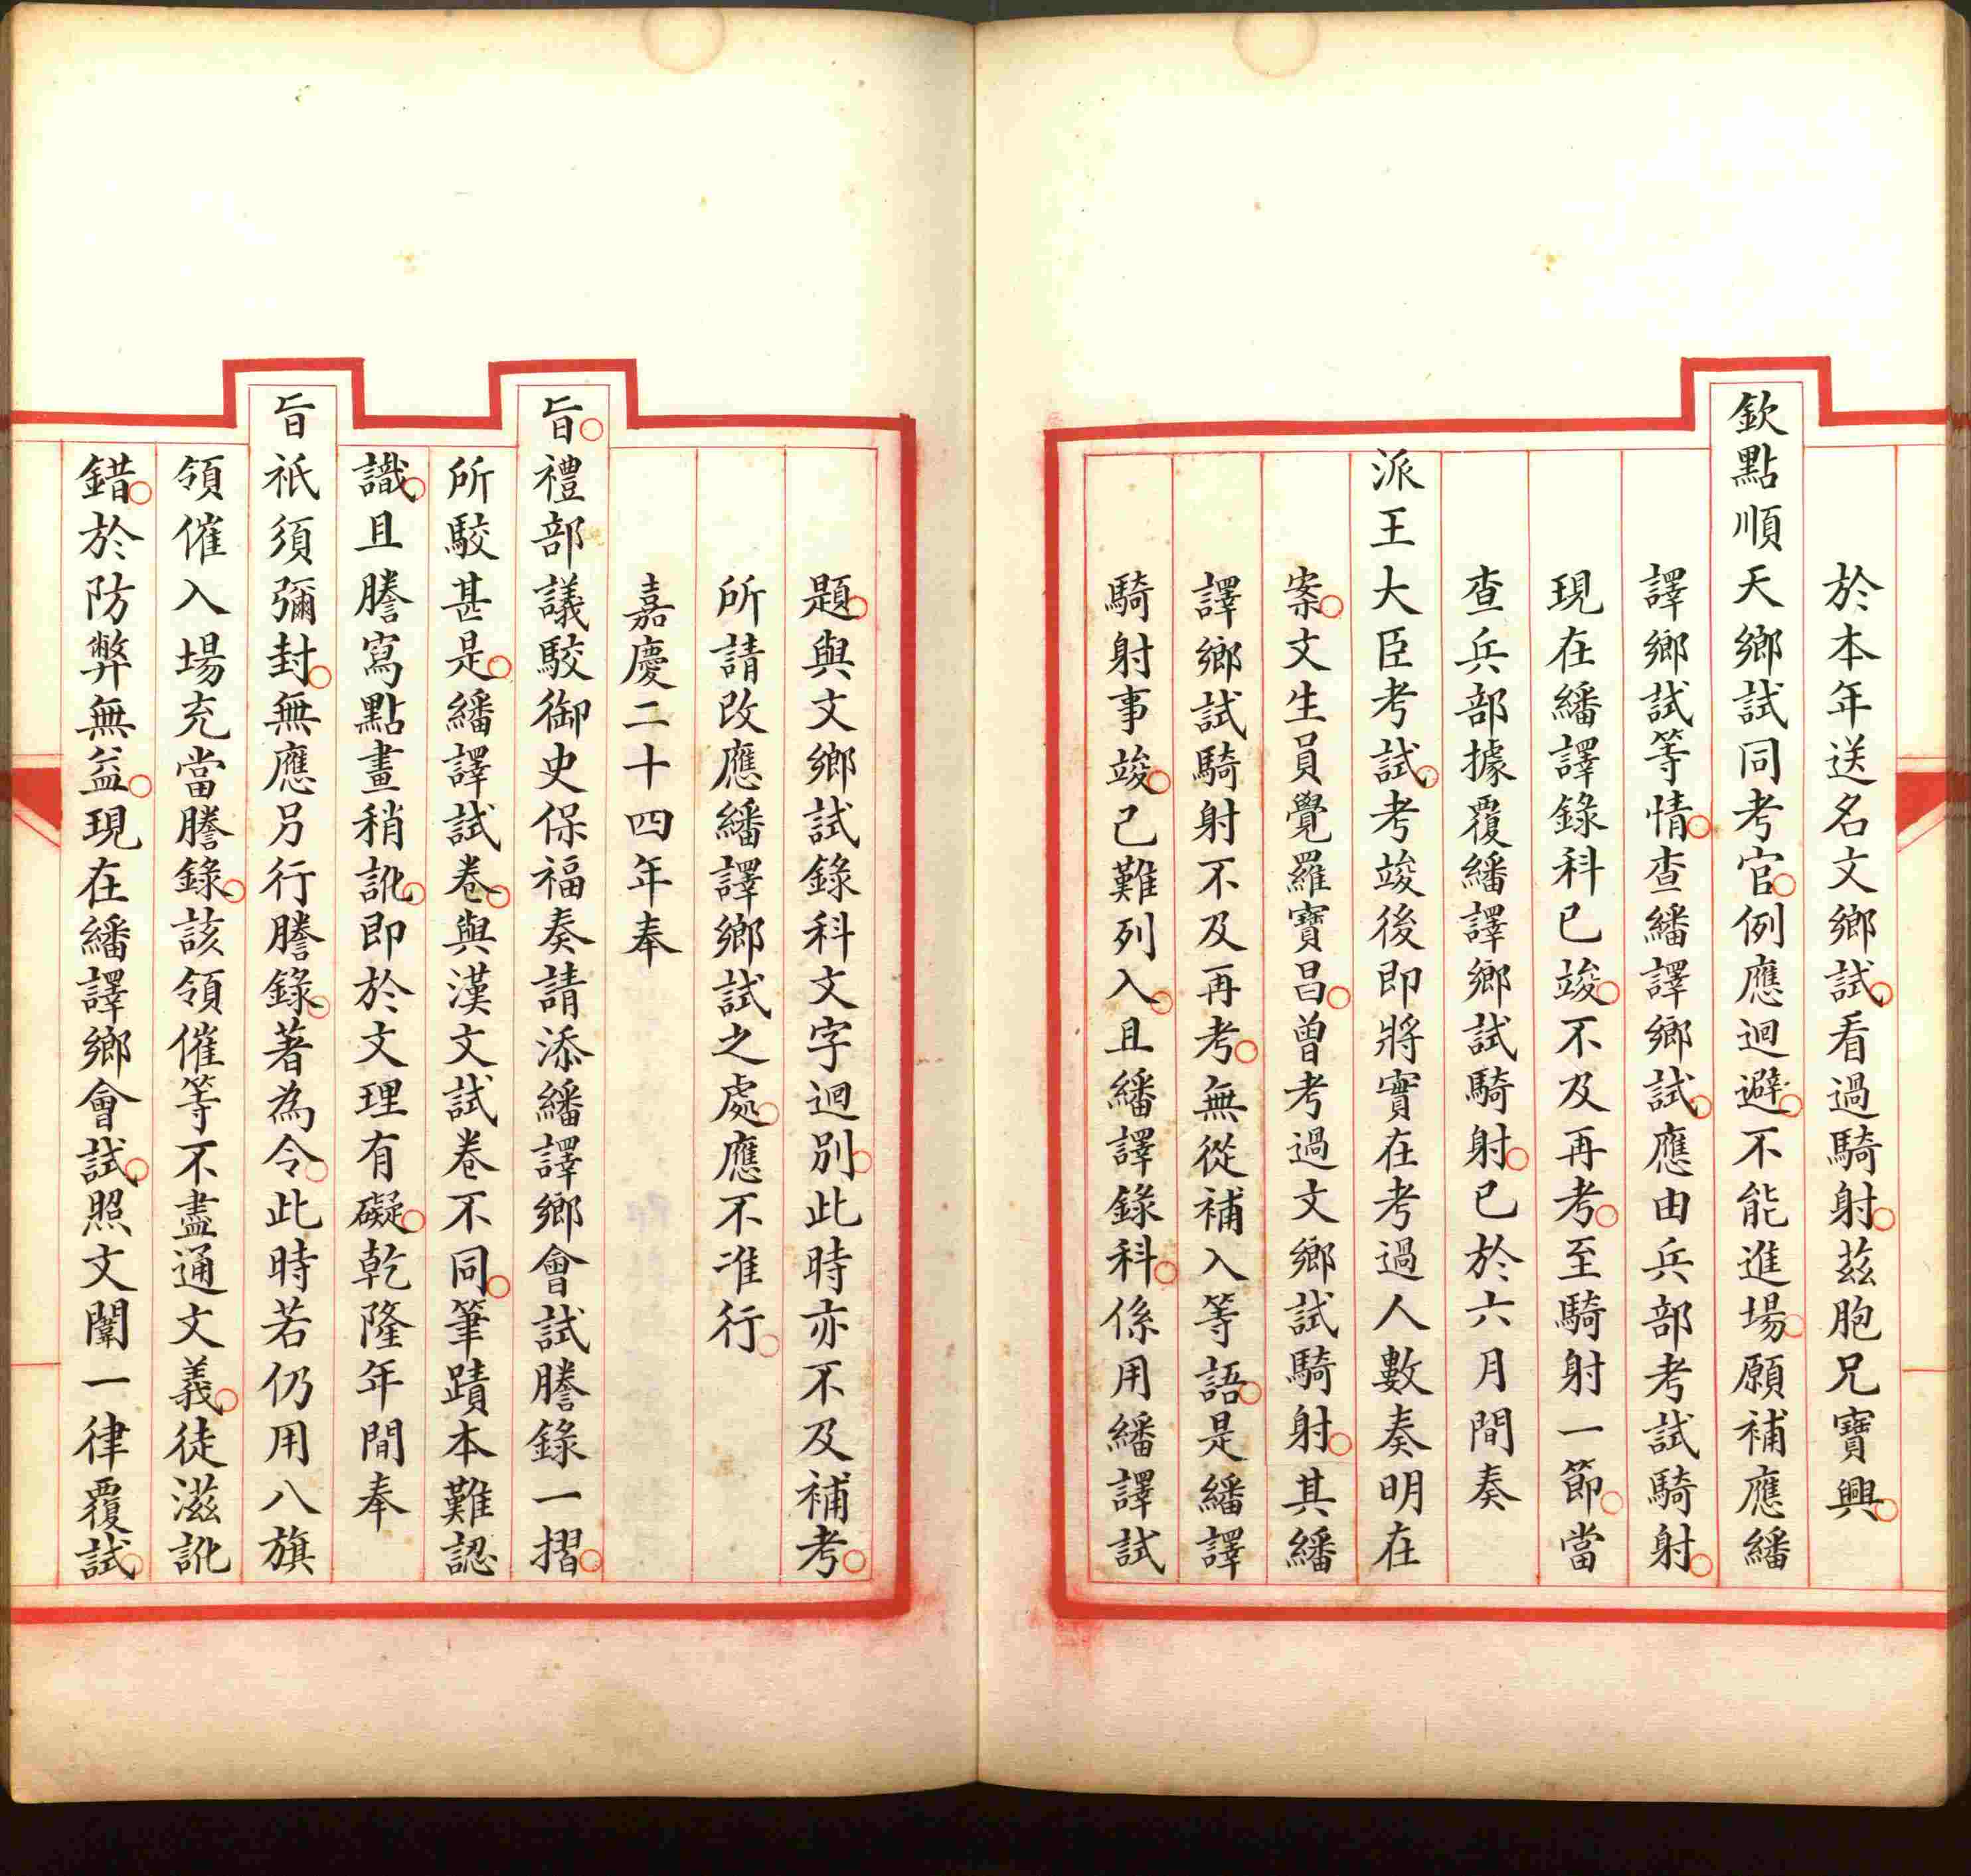 於本年送名文鄉試看過騎射茲胞兄寶興
欽點順天鄉試同考官例應迴避不能進場願補應繙
譯鄉試等情查繙譯鄉試應由兵部考試騎射
現在繙譯錄科已竣不及再考至騎射一節當
查兵部據覆繙譯鄉試騎射已於六月間奏
派王大臣考試考竣後即將實在考過人數奏明在
案文生員覺羅寶昌曾考過文鄉試騎射其繙
譯鄉試騎射不及再考無從補入等語是繙譯
騎射事竣已難列入且繙譯錄科係用繙譯試
題與文鄉試錄科文字迴別此時亦不及補考
所請改應繙譯鄉試之處應不准行
嘉慶二十四年奉
旨禮部議駮御史保福奏請添繙譯鄉會試謄錄一摺
所駮甚是繙譯試卷與漢文試卷不同筆蹟本難認
識且謄寫點畫稍訛即於文理有礙乾隆年間奉
旨祇須彌封無應另行謄錄著為令此時若仍用八旗
領催入場充當謄錄該領催等不盡通文義徒滋訛
錯於防弊無益現在繙譯鄉會試照文闈一律覆試